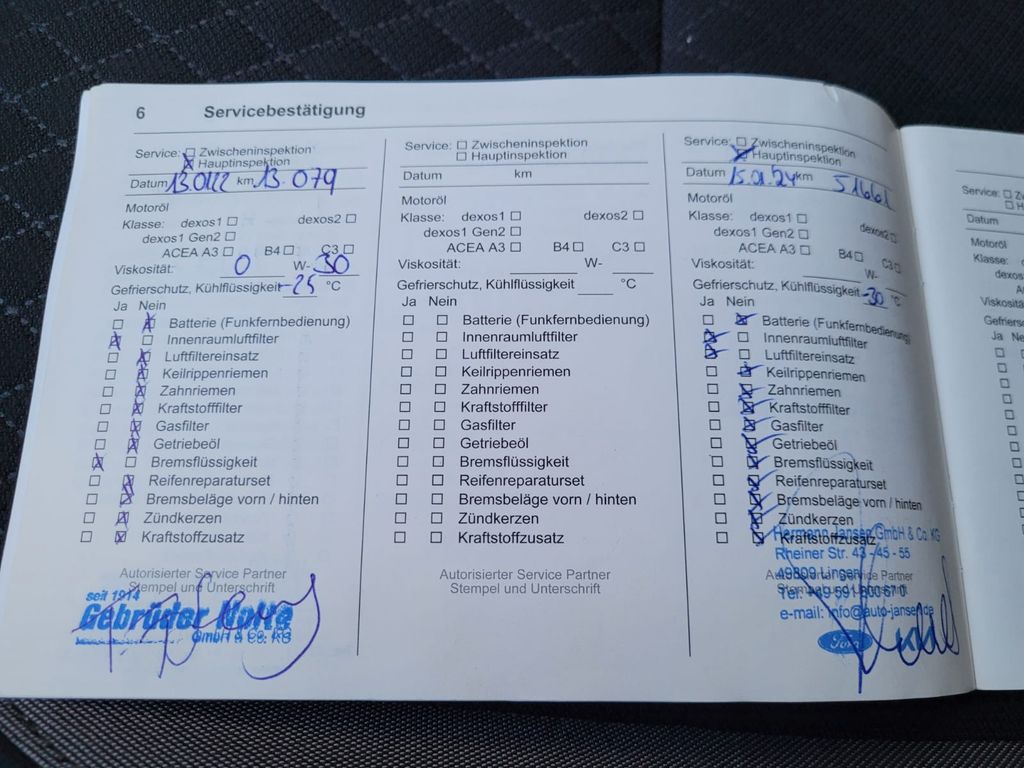 6 Servicebestätigung
Service: Zwischeninspektion
Hauptinspektion
Datum km 13.079
Motoröl
Klasse: dexos1 dexos2
dexos1 Gen2
ACEA A3 B4 C3
Viskosität: 0 W- 30
Gefrierschutz, Kühlflüssigkeit -25 °C
Ja Nein
Batterie (Funkfernbedienung)
Innenraumluftfilter
Luftfiltereinsatz
Keilrippenriemen
Zahnriemen
Kraftstofffilter
Gasfilter
Getriebeöl
Bremsflüssigkeit
Reifenreparaturset
Bremsbeläge vorn / hinten
Zündkerzen
Kraftstoffzusatz
Autorisierter Service Partner
Stempel und Unterschrift
seit 1914
Gebrüder Nolte
GmbH & Co. KG
Service: Zwischeninspektion
Hauptinspektion
Datum km
Motoröl
Klasse: dexos1 dexos2
dexos1 Gen2
ACEA A3 B4 C3
Viskosität: W-
Gefrierschutz, Kühlflüssigkeit °C
Ja Nein
Batterie (Funkfernbedienung)
Innenraumluftfilter
Luftfiltereinsatz
Keilrippenriemen
Zahnriemen
Kraftstofffilter
Gasfilter
Getriebeöl
Bremsflüssigkeit
Reifenreparaturset
Bremsbeläge vorn / hinten
Zündkerzen
Kraftstoffzusatz
Autorisierter Service Partner
Stempel und Unterschrift
Service: Zwischeninspektion
Hauptinspektion
Datum 15.01.24 km 51661
Motoröl
Klasse: dexos1 dexos2
dexos1 Gen2
ACEA A3 B4 C3
Viskosität: W-
Gefrierschutz, Kühlflüssigkeit -30 °C
Ja Nein
Batterie (Funkfernbedienung)
Innenraumluftfilter
Luftfiltereinsatz
Keilrippenriemen
Zahnriemen
Kraftstofffilter
Gasfilter
Getriebeöl
Bremsflüssigkeit
Reifenreparaturset
Bremsbeläge vorn / hinten
Zündkerzen
Kraftstoffzusatz
Hermann Jansen GmbH & Co. KG
Rheiner Str. 43 - 45 - 55
49809 Lingen
Tel. +49 591 800 67 0
e-mail: info@auto-jansen.de
Ford
Service:
Datum
Motoröl
Klasse:
Ja